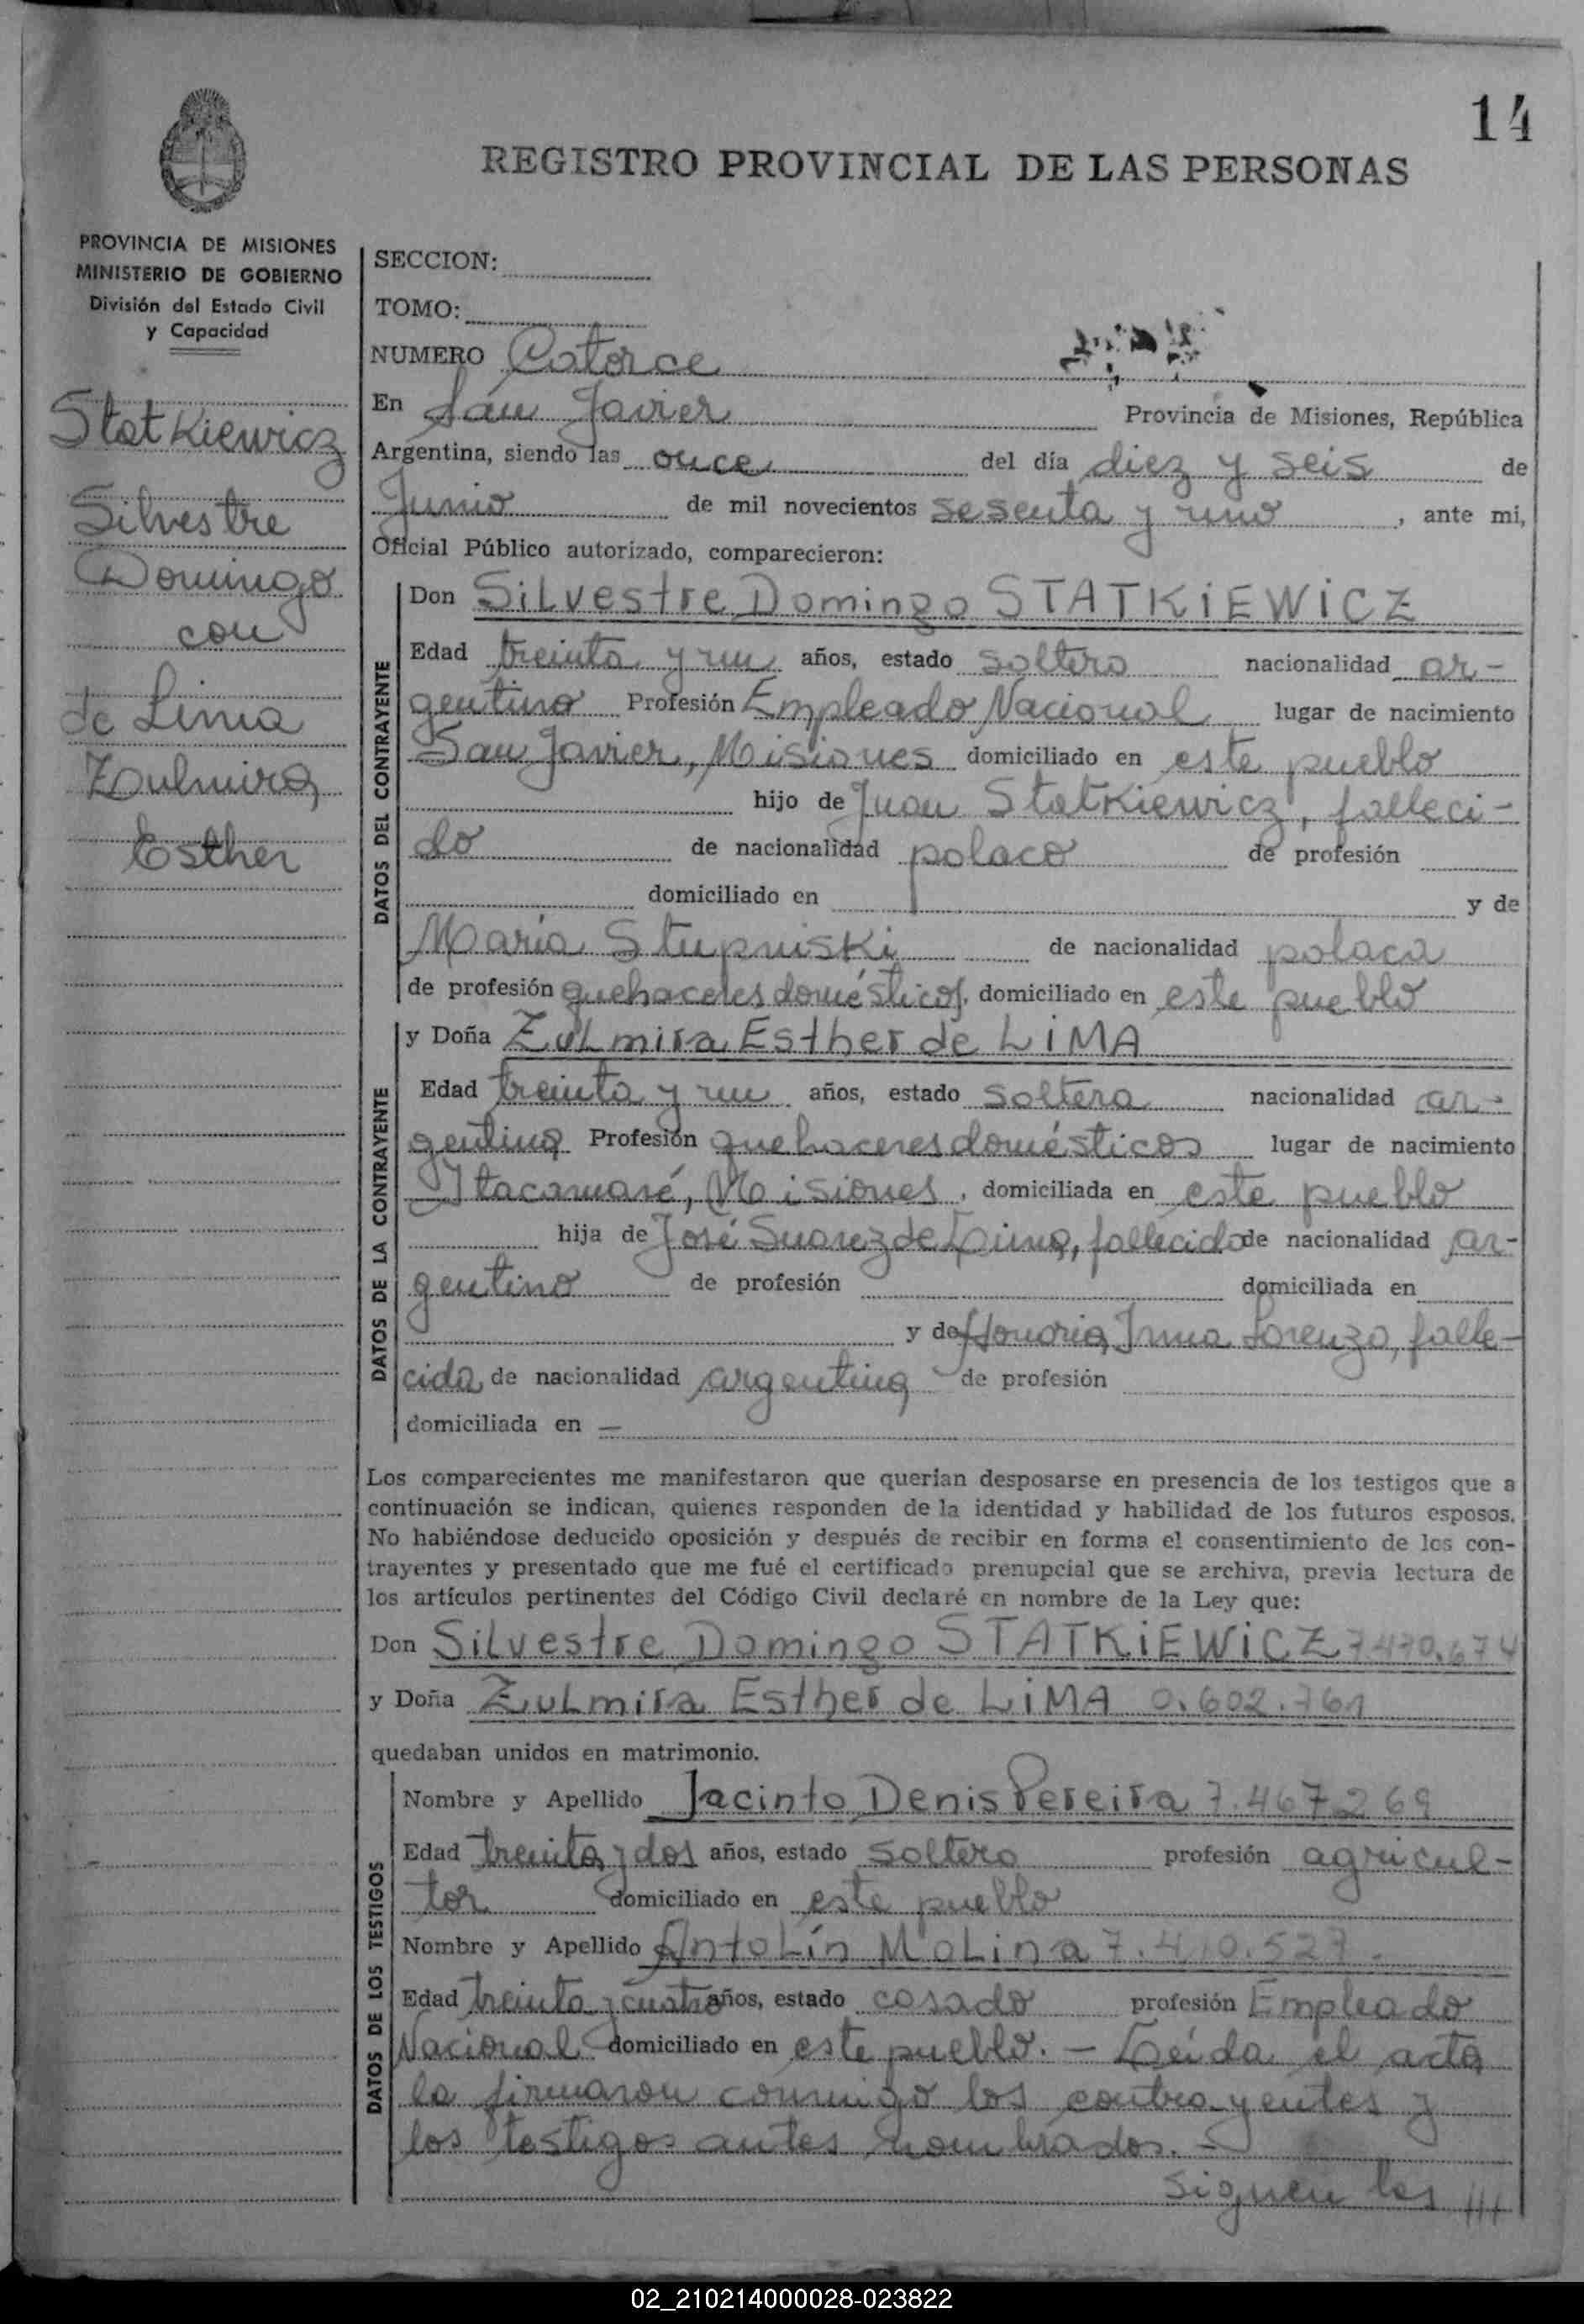 14
REGISTRO PROVINCIAL DE LAS PERSONAS
PROVINCIA DE MISIONES
MINISTERIO DE GOBIERNO
División del Estado Civil
y Capacidad
Statkiewicz
Silvestre
Domingo
con
de Lima
Zulmira
Esther
SECCION:
TOMO:
NUMERO Catorce
En San Javier Provincia de Misiones, República
Argentina, siendo las once del día diez y seis de
Junio de mil novecientos sesenta y uno, ante mi,
Oficial Público autorizado, comparecieron:
DATOS DEL CONTRAYENTE
Don Silvestre Domingo STATKIEWICZ
Edad treinta y un años, estado soltero nacionalidad ar-
gentino Profesión Empleado Nacional lugar de nacimiento
San Javier, Misiones domiciliado en este pueblo
hijo de Juan Statkiewicz, falleci-
do de nacionalidad polaco de profesión
domiciliado en y de
María Stupniski de nacionalidad polaca
de profesión quehaceres domésticos, domiciliado en este pueblo
DATOS DE LA CONTRAYENTE
y Doña Zulmira Esther de LIMA
Edad treinta y un años, estado soltera nacionalidad ar-
gentina Profesión quehaceres domésticos lugar de nacimiento
Itacaruaré, Misiones, domiciliada en este pueblo
hija de José Suarez de Lima, fallecido de nacionalidad ar-
gentino de profesión domiciliada en
y de Honoria Irma Lorenzo, falle-
cida de nacionalidad argentina de profesión
domiciliada en —
Los comparecientes me manifestaron que querían desposarse en presencia de los testigos que a
continuación se indican, quienes responden de la identidad y habilidad de los futuros esposos.
No habiéndose deducido oposición y después de recibir en forma el consentimiento de los con-
trayentes y presentado que me fué el certificado prenupcial que se archiva, previa lectura de
los artículos pertinentes del Código Civil declaré en nombre de la Ley que:
Don Silvestre Domingo STATKIEWICZ 7.470.674
y Doña Zulmira Esther de LIMA 0.602.761
quedaban unidos en matrimonio.
DATOS DE LOS TESTIGOS
Nombre y Apellido Jacinto Denis Pereira 7.467.269
Edad treinta y dos años, estado soltero profesión agricul-
tor domiciliado en este pueblo
Nombre y Apellido Antolín Molina 7.410.527.
Edad treinta y cuatro años, estado casado profesión Empleado
Nacional domiciliado en este pueblo. — Leída el acta
la firmaron conmigo los contrayentes y
los testigos antes nombrados. —
Siguen las ///
02_210214000028-023822